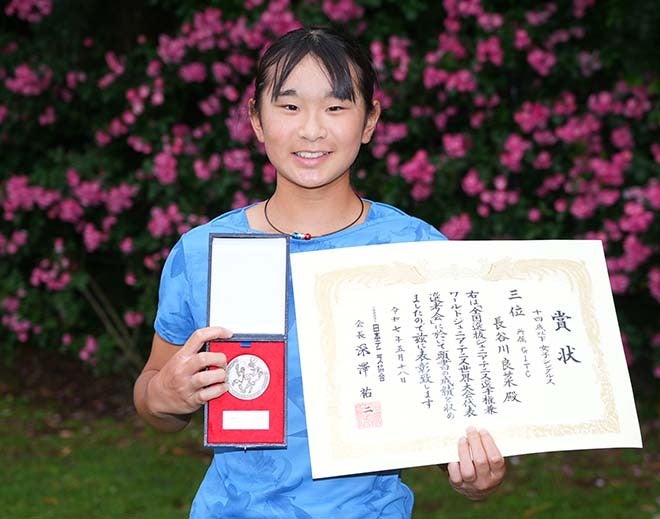 賞状
十四歳以下女子シングルス
所属 GITC
三位 長谷川 良菜 殿
右は全国選抜ジュニアテニス選手権兼
ワールドジュニアテニス世界大会代表
選考会に於て頭書の成績を収め
ましたので茲に表彰致します
令和七年五月十八日
日本テニス協会
会長 深澤 祐二